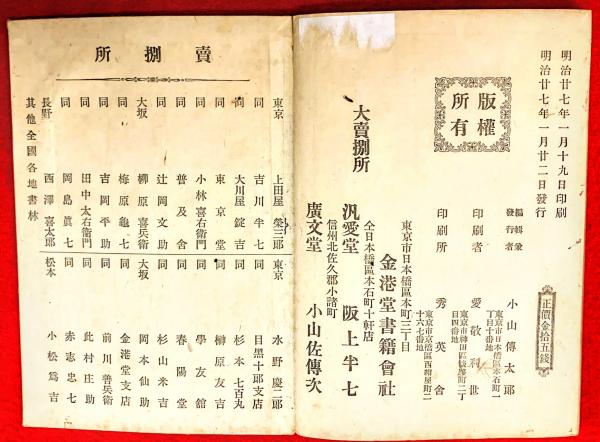 明治廿七年一月十九日印刷
明治廿七年一月廿二日發行
正價金拾五錢
版權所有
編輯兼發行者 小山傳太郎
東京市日本橋區本石町二丁目十番地
印刷者 愛敬利世
東京市神田區 町二丁目四番地
印刷所 秀英舍
東京市京橋區西紺屋町二十六七番地
大賣捌所
東京市日本橋區本町三丁目
金港堂書籍會社
仝日本橋區本石町十軒店
汎愛堂 阪上半七
信州北佐久郡小諸町
廣文堂 小山佐傳次
賣捌所
東京 上田屋榮三郎
同 吉川半七
同 大川屋錠吉
同 東京堂
同 小林喜右衞門
同 普及舍
同 辻岡文助
大坂 柳原喜兵衞
同 梅原龜七
同 吉岡平助
同 田中太右衞門
同 岡島眞七
長野 西澤喜太郎
東京 水野慶二郎
同 目黑十郎支店
同 杉本七百丸
同 榊原友吉
同 學友館
同 春陽堂
同 杉山米吉
大坂 岡本仙助
同 金港堂支店
同 前川善兵衞
同 此村庄助
同 赤志忠七
松本 小松爲吉
其他全國各地書林